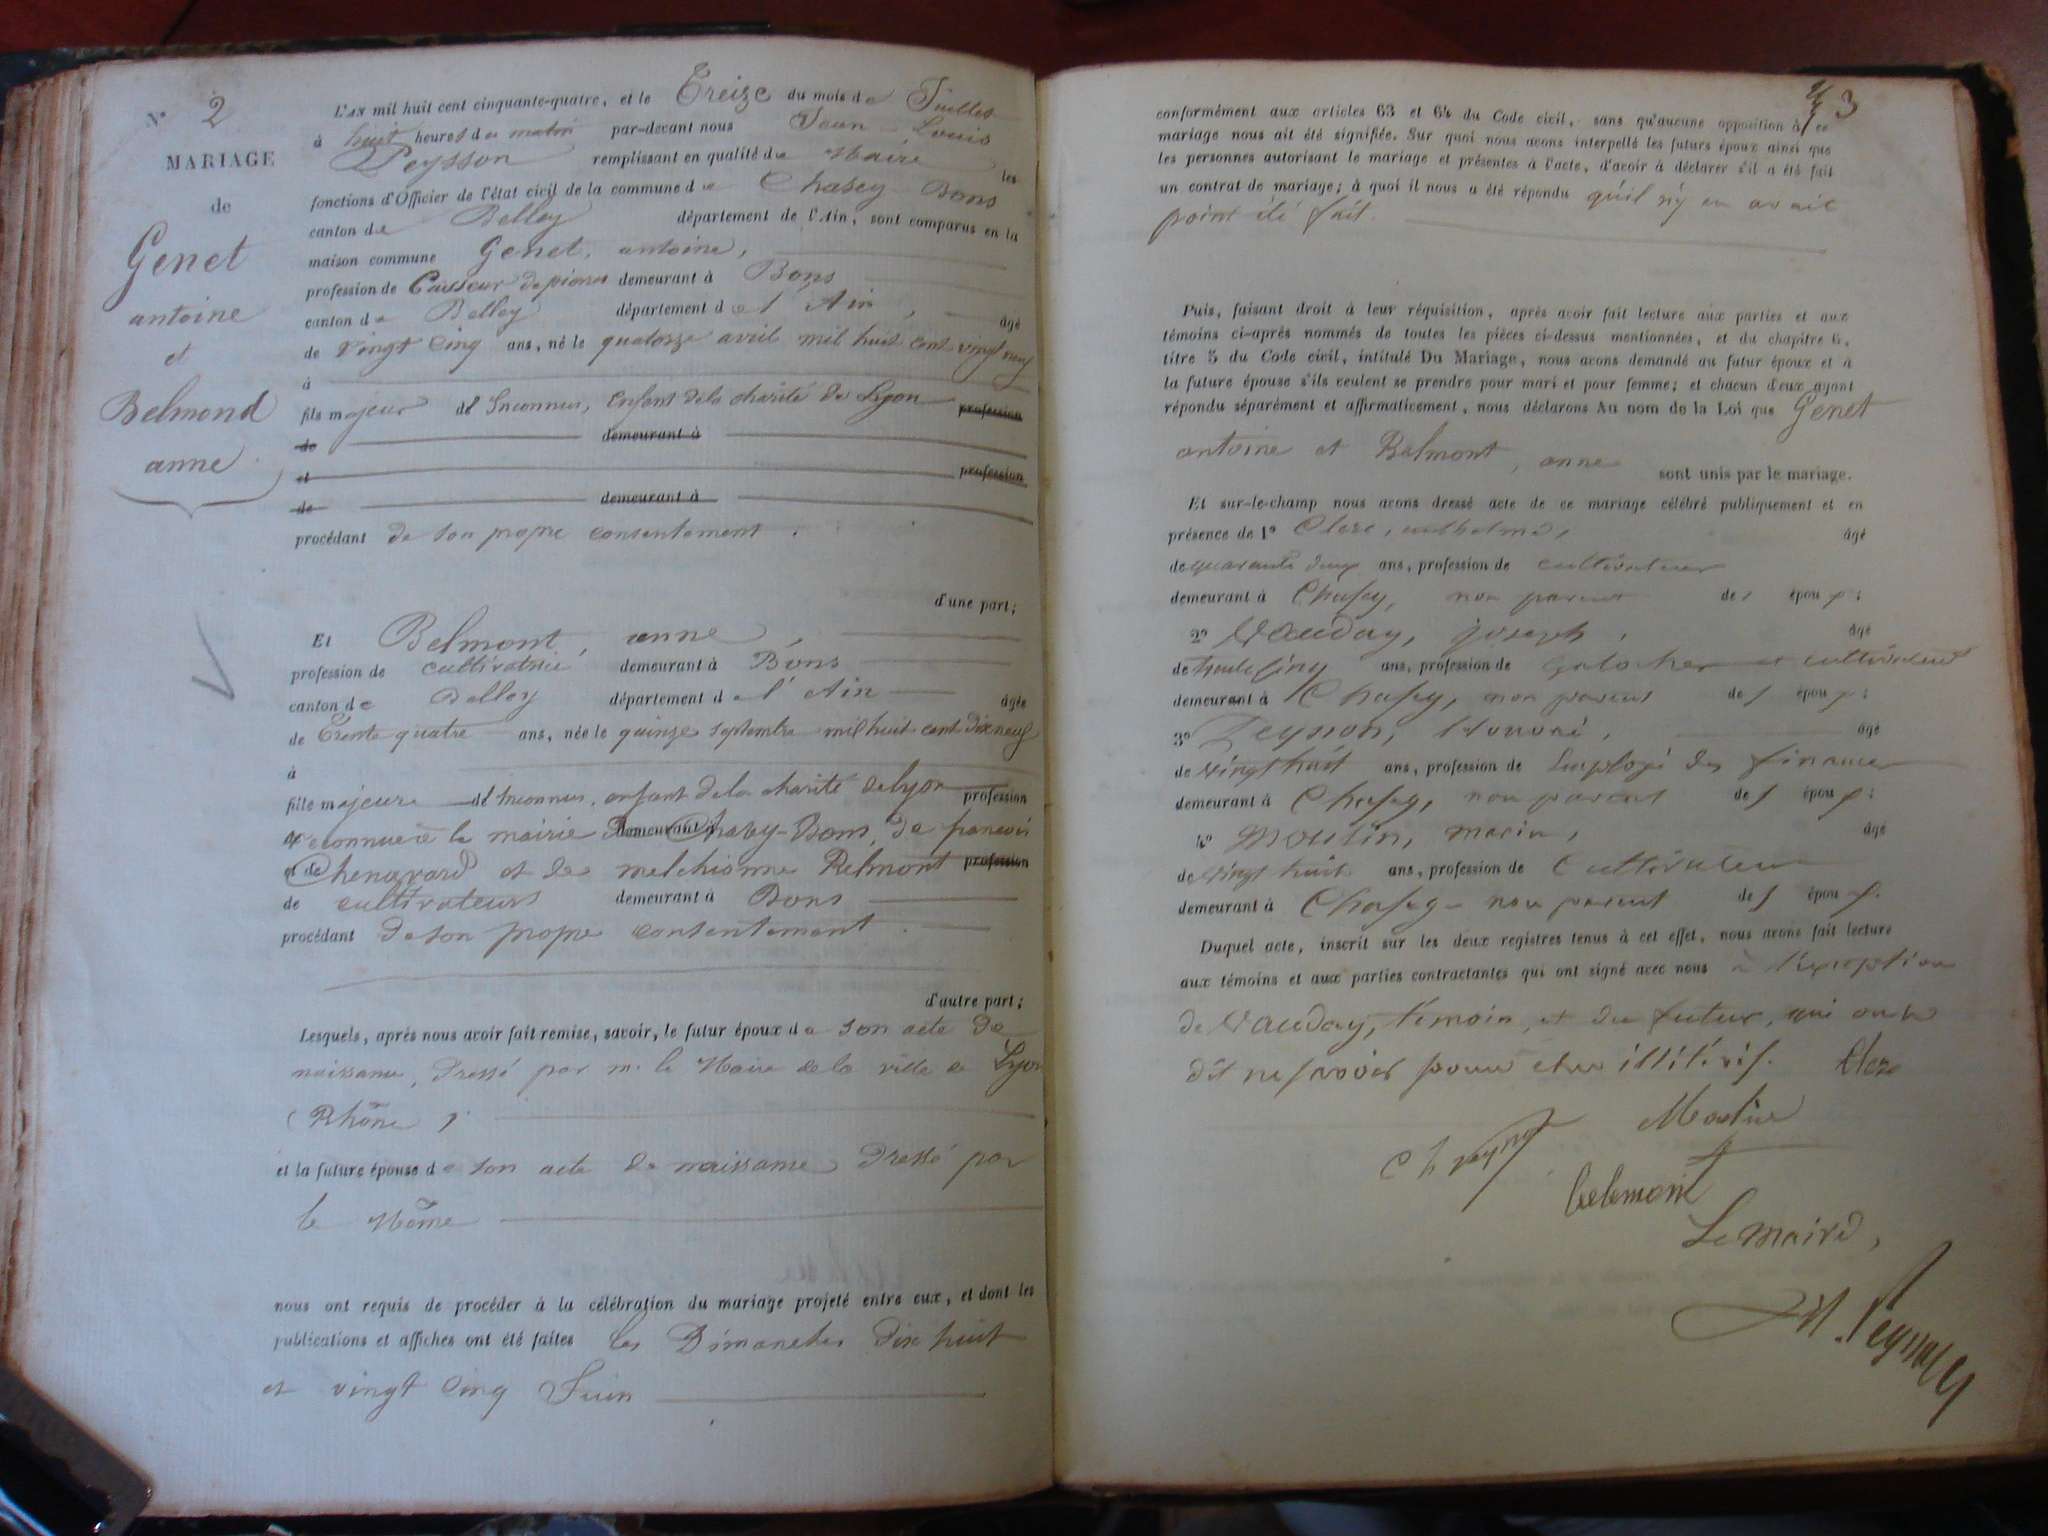 N° 2
MARIAGE
de
Genet
antoine
et
Belmond
anne
L'AN mil huit cent cinquante-quatre, et le Treize du mois de Juillet
à huit heures du matin par-devant nous Jean Louis
Peysson remplissant en qualité de Maire les
fonctions d'Officier de l'état civil de la commune de Chasey Bons
canton de Belley département de l'Ain, sont comparus en la
maison commune Genet, antoine,
profession de Casseur de pierres demeurant à Bons
canton de Belley département de l'Ain, âgé
de vingt cinq ans, né le quatorze avril mil huit cent vingt neuf
à
fils majeur de Inconnus, enfant de la charité de Lyon profession
de demeurant à
et profession
de demeurant à
procédant de son propre consentement.
d'une part;
Et Belmont, anne,
profession de cultivatrice demeurant à Bons
canton de Belley département de l'Ain âgée
de Trente quatre ans, née le quinze septembre mil huit cent dix neuf
à
fille majeure de Inconnus, enfant de la charité de lyon profession
reconnue à la mairie de demeurant à Chasey-Bons, de francois
et de Chenavard et de melchionne Belmont profession
de cultivateurs demeurant à Bons
procédant de son propre consentement.
d'autre part;
Lesquels, après nous avoir fait remise, savoir, le futur époux de son acte de
naissance, Dressé par m. le Maire de la ville de Lyon
(Rhône)
et la future épouse de son acte de naissance Dressé par
le Même
nous ont requis de procéder à la célébration du mariage projeté entre eux, et dont les
publications et affiches ont été faites les Dimanches dix huit
et vingt cinq Juin
3
conformément aux articles 63 et 64 du Code civil, sans qu'aucune opposition à ce
mariage nous ait été signifiée. Sur quoi nous avons interpellé les futurs époux ainsi que
les personnes autorisant le mariage et présentes à l'acte, d'avoir à déclarer s'il a été fait
un contrat de mariage; à quoi il nous a été répondu qu'il n'y en avait
point été fait.
Puis, faisant droit à leur réquisition, après avoir fait lecture aux parties et aux
témoins ci-après nommés de toutes les pièces ci-dessus mentionnées, et du chapitre 6,
titre 5 du Code civil, intitulé Du Mariage, nous avons demandé au futur époux et à
la future épouse s'ils veulent se prendre pour mari et pour femme; et chacun d'eux ayant
répondu séparément et affirmativement, nous déclarons Au nom de la Loi que Genet
antoine et Belmont, anne sont unis par le mariage.
Et sur-le-champ nous avons dressé acte de ce mariage célébré publiquement et en
présence de 1° Clerc, anthelme, âgé
de quarante deux ans, profession de cultivateur
demeurant à Chasey, non parent des époux;
2° Vauday, joseph, âgé
de trente cinq ans, profession de galocher et cultivateur
demeurant à Chasey, non parent des époux;
3° Peysson, Honoré, âgé
de vingt huit ans, profession de Employé des finances
demeurant à Chasey, non parent des époux;
4° Moulin, marin, âgé
de vingt huit ans, profession de Cultivateur
demeurant à Chasey - non parent des époux.
Duquel acte, inscrit sur les deux registres tenus à cet effet, nous avons fait lecture
aux témoins et aux parties contractantes qui ont signé avec nous à l'exception
de Vauday, témoin, et du futur, qui ont
dit ne savoir pour etre illitérés. Clerc
belemont
Le maire,